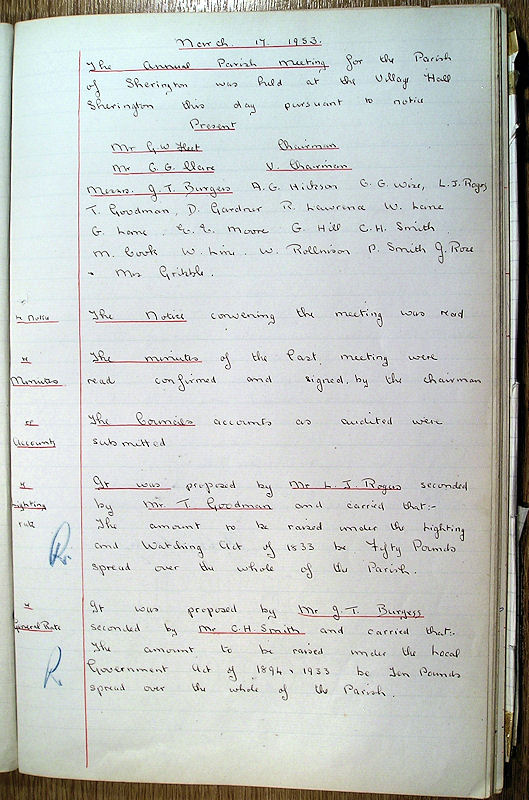 March. 17. 1953.
The Annual Parish meeting for the Parish
of Sherington was held at the Village Hall
Sherington this day pursuant to notice
Present
Mr G.W Fleet Chairman
Mr C.G. Clare V. Chairman
Messrs. J.T. Burgess A.G. Hickson G.G. Wise, L.J. Rogers
T. Goodman, D. Gardner R. Lawrence W. Lane
G. Lane E.E. Moore G. Hill C.H. Smith
M. Cook W. Line. W. Rollinson P. Smith J. Rose
Mrs Gribble.
re Notice The Notice convening the meeting was read
re The minutes of the last meeting were
Minutes read confirmed and signed by the chairman
re The Councils accounts as audited were
Accounts submitted
re It was proposed by Mr L.J. Rogers seconded
Lighting by Mr T. Goodman and carried that:-
rate The amount to be raised under the Lighting
R. and Watching Act of 1833 be Fifty Pounds
spread over the whole of the Parish.
re It was proposed by Mr J.T. Burgess
General Rate seconded by Mr C.H. Smith and carried that:-
The amount to be raised under the Local
R. Government Act of 1894 & 1933 be Ten Pounds
spread over the whole of the Parish.